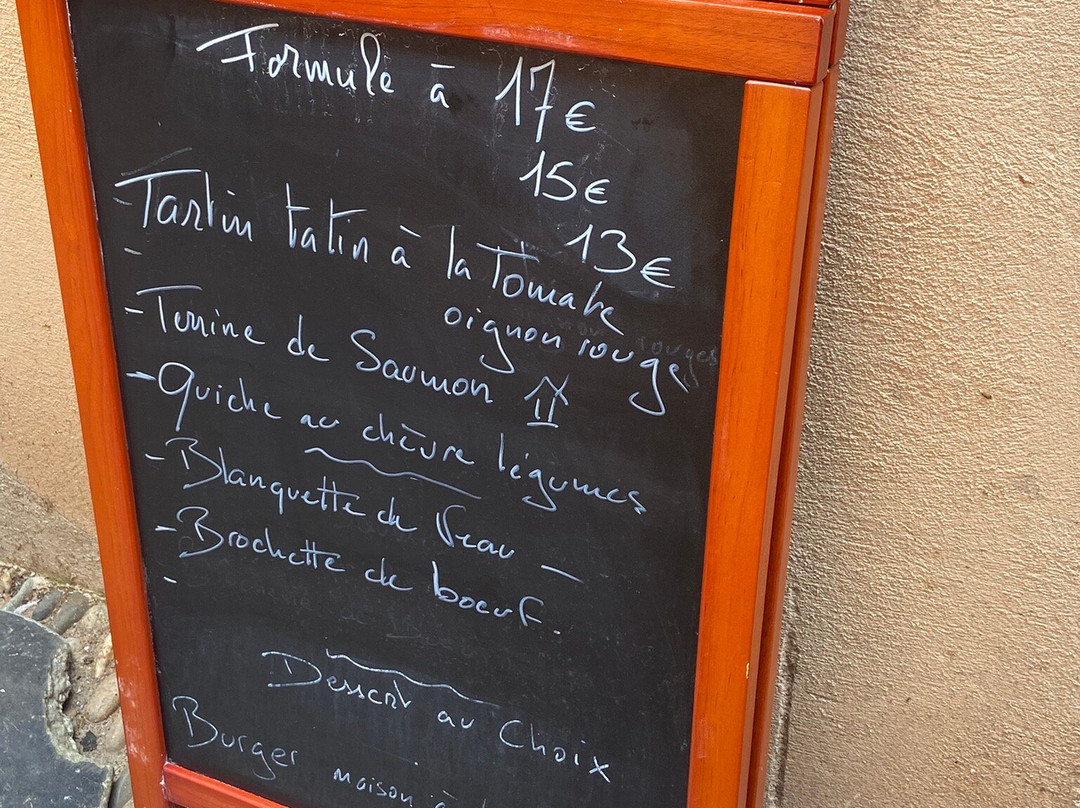 Formule à 17€
15€
13€
Tartin tatin à la Tomate
oignon rouge
- Terrine de Saumon
- Quiche au chèvre légumes
- Blanquette de Veau -
- Brochette de boeuf.
-
Dessert au Choix
Burger maison à